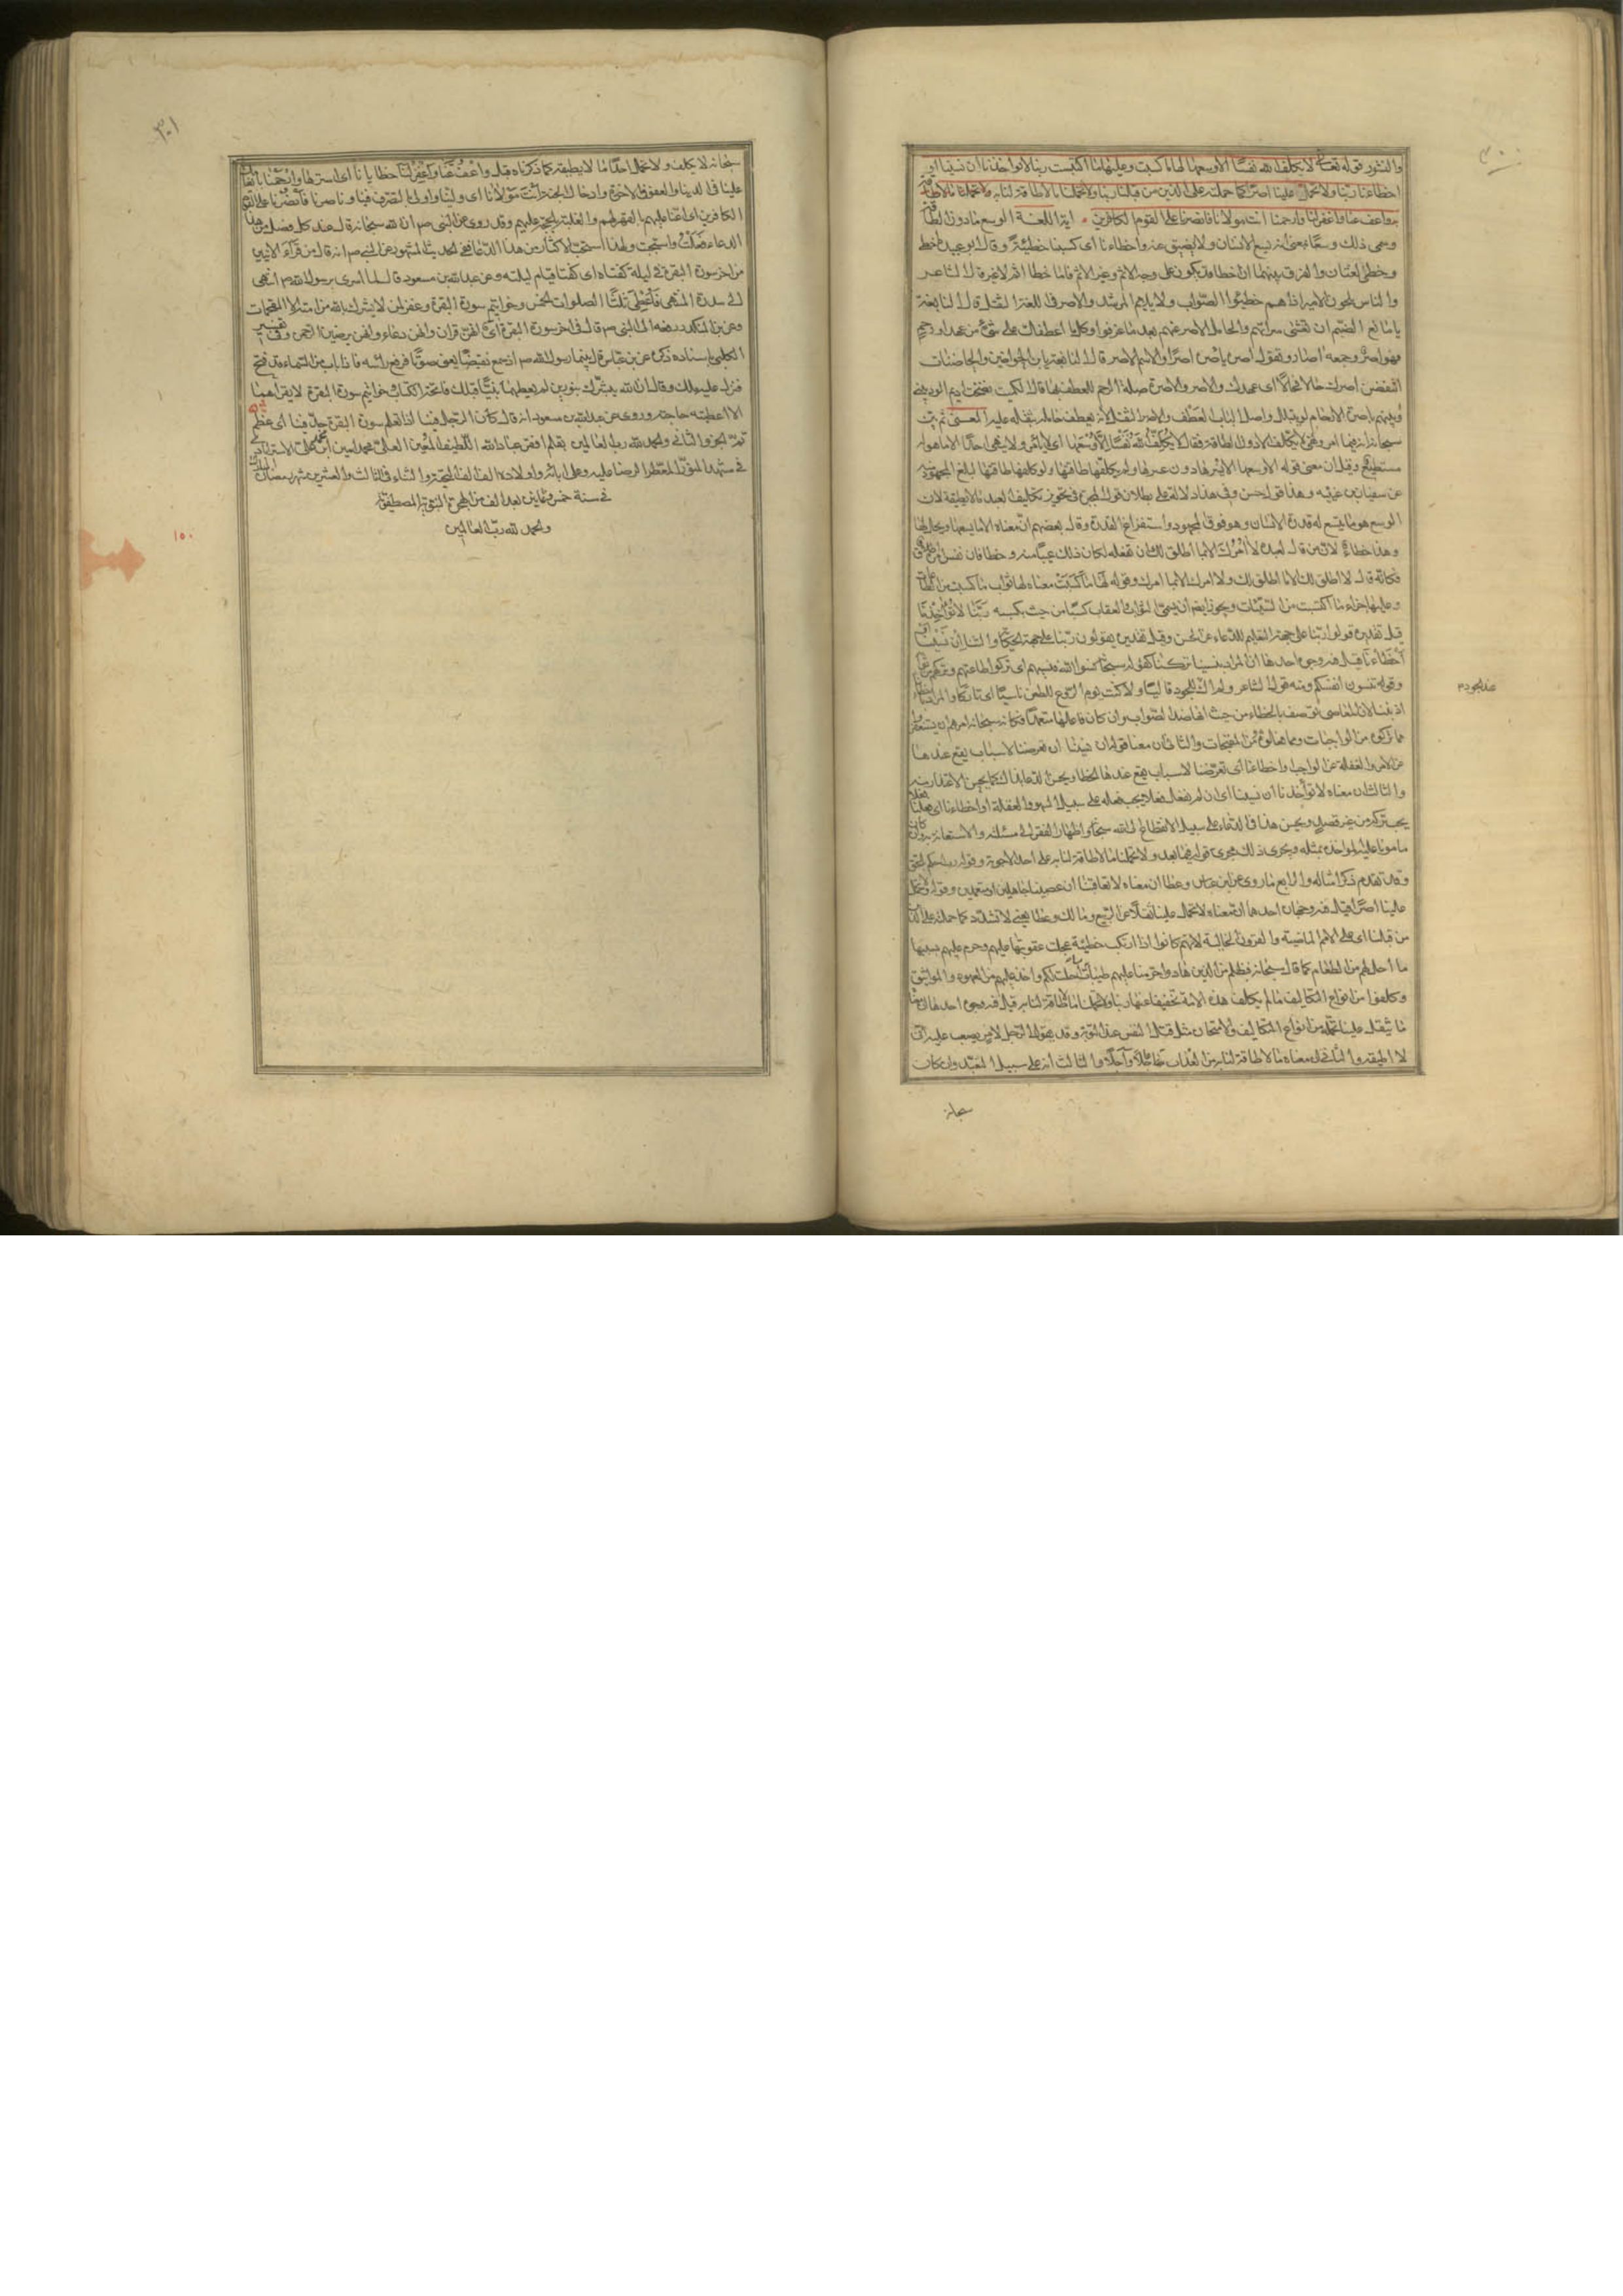 ٣٠٠
والنشور قوله تعالى لا يكلف الله نفسا الا وسعها لها ما كسبت وعليها ما اكتسبت ربنا لا تؤاخذنا ان نسينا او
اخطأنا ربنا ولا تحمل علينا اصرا كما حملته على الذين من قبلنا ربنا ولا تحملنا ما لا طاقة لنا به
واعف عنا واغفر لنا وارحمنا انت مولانا فانصرنا على القوم الكافرين اية اللغة الوسع ما دون الطاقة
وسمى ذلك وسعا بمعنى انه يسع الانسان ولا يضيق عنه واخطاءنا اى كسبنا خطيئة وقال ابو عبيدة اخطا
وخطئ لغتان والفرق بينهما ان اخطا قد يكون على وجه الاثم وغير الاثم فاما خطا اثم لا غير قال الشاعر
والناس يلحون الامير اذا هم خطئوا الصواب ولا يلام المرشد والاصر فى اللغة الثقل قال النابغة
يا مانع الضيم ان تغشى سراتهم والحامل الاصر عنهم بعد ما عرفوا وكلما عطفك على شئ من عهد او رحم
فهو اصر وجمعه اصار وتقول اصر ياصر اصرا والاسم الاصر قال النابغة يابن الحواضن والحاضنات
اتنقض اصرك حالا فحالا اى عهدك والاصر والاصرة صلة الرحم للعطف بها قال الكميت نضحت اديم الود بينى
وبينهم باصرة الارحام لو يتبلل واصل الباب العطف والاصر الثقل لانه يعطف حامله بثقله عليه المعنى ثم بين
سبحانه انه فيما امر ونهى لا يكلف الا دون الطاقة فقال لا يكلف الله نفسا الا وسعها اى لا يامر ولا ينهى احدا الا ما هو له
مستطيع وقيل ان معنى قوله الا وسعها الا يسرها دون عسرها ولم يكلفها طاقتها ولو كلفها طاقتها لبلغ المجهود
عن سفيان بن عيينه وهذا قول حسن وفى هذا دلالة على بطلان قول المجبرة فى تجويز تكليف العبد ما لا يطيقه لان
الوسع هو ما يتسع له قدرة الانسان وهو فوق المجهود واستفراغ القدرة وقال بعضهم ان معناه الا ما يسعها ويحل لها
وهذا خطاء لان من قال لعبده لا امرك الا بما اطلق لك ان تفعله لكان ذلك عيبا منه وخطا فان نفس امره
فكانه قال لا اطلق لك الا ما اطلق لك ولا امرك الا بما امرك وقوله لها ما كسبت معناه لها ثواب ما كسبت من
وعليها جزاء ما اكتسبت من السيئات ويجوز ايضا ان يسمى الثواب والعقاب كسبا من حيث بكسبه ربنا لا تؤاخذنا
قيل تقديره قولوا ربنا على جهة التعليم للدعاء عن الحسن وقيل تقديره يقولون ربنا على جهة الحكاية والثناء ان نسينا
او اخطأنا قيل فيه وجوه احدها ان المراد بنسينا تركنا كقوله سبحانه نسوا الله فنسيهم اى تركوا طاعته فتركهم
وقوله تنسون انفسكم ومنه قول الشاعر ولم اك للجود قاليا ولا كنت يوم الروع للطعن ناسيا اى تاركا والمراد باخطأنا
عند الجود
اذنبنا لان المعاصى توصف بالخطاء من حيث انها ضد الصواب وان كان فاعلها متعمدا فكانه سبحانه امرهم ان يستغفروا
مما تركوه من الواجبات ومما فعلوه من المقبحات والثانى ان معنا قوله ان نسينا ان تعرضنا لاسباب يقع عندها
عن الامر والغفلة عن الواجب واخطأنا اى تعرضنا لاسباب يقع عندها الخطا ويحسن الدعا بذلك كما يحسن الاعتذار منه
والثالث ان معناه لا تؤاخذنا ان نسينا اى ان لم نفعل فعلا يجب فعله على سبيل السهو والغفلة او اخطاءنا اى فعلنا فعلا
يجب تركه من غير قصد ويحسن هذا فى الدعاء على سبيل الانقطاع الى الله سبحانه واظهار الفقر الى مسئلته والاستعانة به وان كان
مامونا عليه المواخذة بمثله ويجرى ذلك مجرى قوله فيما بعد ولا تحملنا ما لا طاقة لنا به على احد الاجوبة وقوله رب احكم بالحق
وقد تقدم ذكر امثاله والرابع ما روى عن ابن عباس وعطا ان معناه لا تعاقبنا ان عصينا جاهلين او متعمدين وقوله ولا تحمل
علينا اصرا قيل فيه وجهان احدهما ان معناه لا تحمل علينا ثقلا عن الربيع ومالك وعطا يعنى لا تشدد كما حملته على الذين
من قبلنا اى على الامم الماضية والقرون الخالية لانهم كانوا اذا ارتكبوا خطيئة عجلت عقوبتها عليهم وحرم عليهم بسببها
ما احل لهم من الطعام كما قال سبحانه فبظلم من الذين هادوا حرمنا عليهم طيبات احلت لهم واخذ عليهم من العهود والمواثيق
وكلفوا من انواع التكاليف ما لم يكلف هذه الامة تخفيفا عنها ربنا ولا تحملنا ما لا طاقة لنا به قيل فيه وجوه احدها ان معناه
ما يثقل علينا تحمله من انواع التكاليف والامتحان مثل قتل النفس عند التوبة وقد يقول الرجل لامر يصعب عليه انى
لا اطيقه والثانى ان معناه ما لا طاقة لنا به من العذاب عاجلا وآجلا والثالث انه على سبيل التعبد وان كان
سبحانه
٣٠١
سبحانه لا يكلف ولا يحمل احدا ما لا يطيقه كما ذكرناه قبل واعف عنا واغفر لنا خطايانا اى استرها وارحمنا بانعامك
علينا فى الدنيا والعفو فى الاخرة وادخال الجنة انت مولانا اى ولينا واولى بالتصرف فينا وناصرنا فانصرنا على القوم
الكافرين اى اعنا عليهم بالقهر لهم والغلبة بالحجة عليهم وقد روى عن النبى صم ان الله سبحانه قال عند كل فصل من هذا
الدعاء فعلت واستجبت ولهذا استحب الاكثار من هذا الدعاء ففى الحديث المشهور عن النبى صم انه قال من قرأ الايتين
من اخر سورة البقرة فى ليلة كفتاه اى كفتا قيام ليلته وعن عبدالله بن مسعود قال لما اسرى برسول الله صم انتهى
الى سدرة المنتهى فاعطى ثلثا الصلوات الخمس وخواتيم سورة البقرة وغفر لمن لا يشرك بالله من امته الا المقحمات
وعن ابن المنكدر رفعه الى النبى صم قال فى اخر سورة البقرة آى انهن قران وانهن دعاء وانهن يرضين الرحمن وفى تفسير
الكلبى باسناده ذكره عن ابن عباس قال بينما رسول الله صم اذ سمع نقيضا يعنى صوتا فرفع راسه فاذا باب من السماء قد فتح
فنزل عليه ملك وقال ان الله يبشرك بنورين لم يعطهما نبيا قبلك فاتحة الكتاب وخواتيم سورة البقرة لا يقرأهما
الا اعطيته حاجته وروى عن عبدالله بن مسعود انه قال كان الرجل فينا اذا تعلم سورة البقرة جل فينا اى عظم
تم الجزو الثانى والحمد لله رب العالمين بقلم افقر عباد الله اللطيف المعين العلى محمد امين ابن محمد على الاسترابادى
فى مشهد المعطر الرضا عليه وعلى بائه واولاده الف الف التحية والثناء فى الثالث والعشرين شهر رمضان المبارك
فى سنة خمس وثمانين بعد الف من الهجرة النبوية المصطفوية
والحمد لله رب العالمين
١٥٠